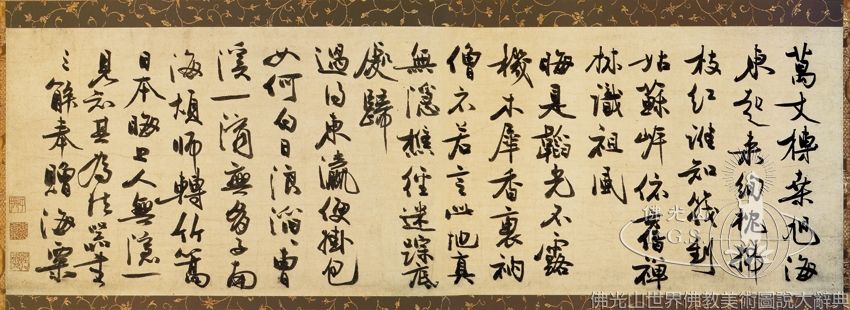 萬丈榑桑旭海
東起來絢掃
枝紅誰知筏到
姑蘇岸依舊禪
林識祖風
晦是韜光不露
機木犀香裏衲
僧衣若言此地真
無隱樵徑迷踪底
處歸
過得東瀛便掛包
如何白日浪滔々曹
溪一滴無多子南
海煩師轉竹篙
日本晦上人無隱一
見知其為法器書
三解奉贈海粟
佛光山
F.G.S.
佛光山世界佛教美術圖說大辭典